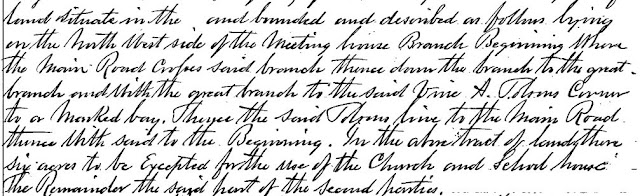 land situate in the and bounded and described as follows lying
on the North West side of the Meeting house Branch Beginning Where
the Main Road Crosses said branch thence down the branch to the great
branch and With the great branch to the said A. Corner
to a Marked bay. Thence the said line to the Main Road
thence With said to the Beginning. In the above tract of land there
six acres to be Excepted for the use of the Church and School house
The Remainder the said part of the second parties.